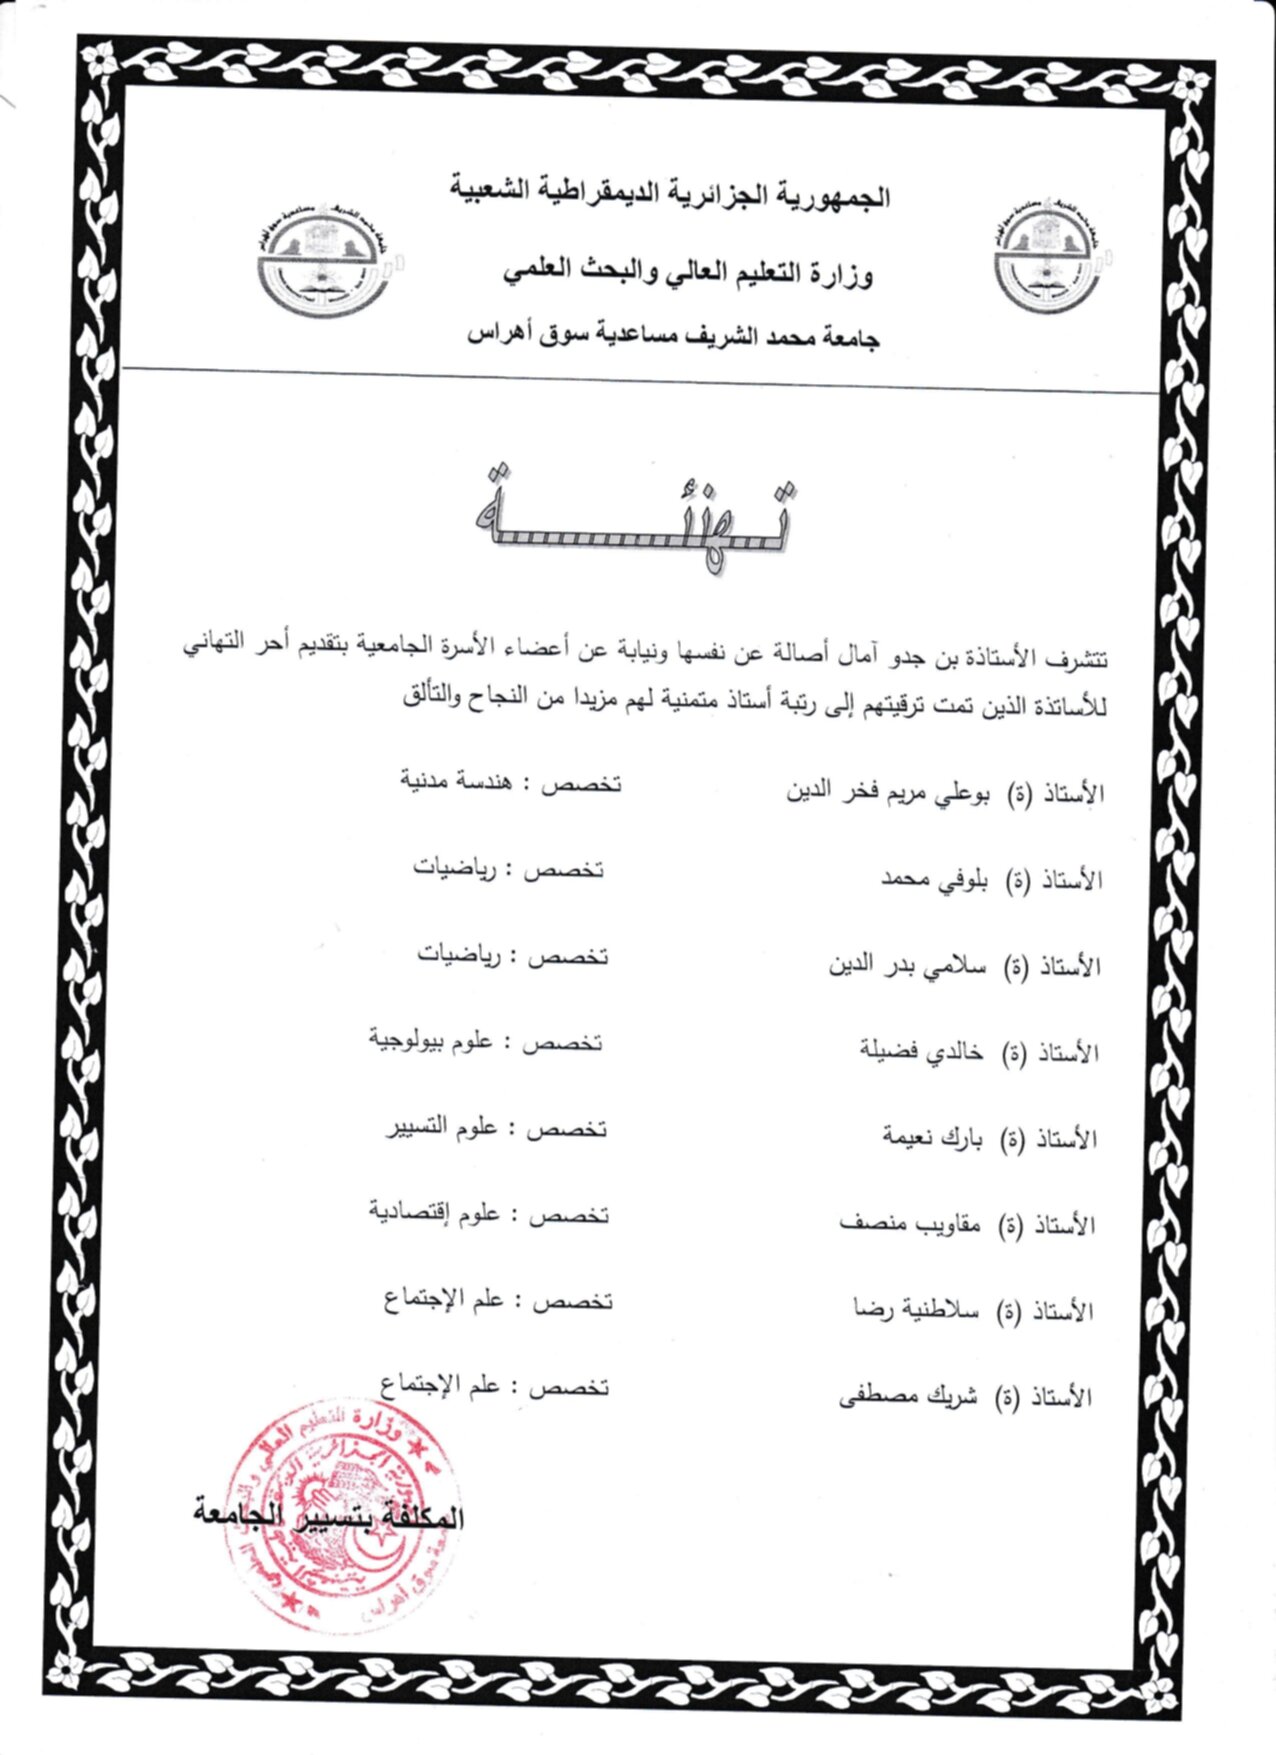 الجمهورية الجزائرية الديمقراطية الشعبية
وزارة التعليم العالي والبحث العلمي
جامعة محمد الشريف مساعدية سوق أهراس
تـهنئـــــــة
تتشرف الأستاذة بن جدو آمال أصالة عن نفسها ونيابة عن أعضاء الأسرة الجامعية بتقديم أحر التهاني
للأساتذة الذين تمت ترقيتهم إلى رتبة أستاذ متمنية لهم مزيدا من النجاح والتألق
الأستاذ (ة) بوعلي مريم فخر الدين تخصص : هندسة مدنية
الأستاذ (ة) بلوفي محمد تخصص : رياضيات
الأستاذ (ة) سلامي بدر الدين تخصص : رياضيات
الأستاذ (ة) خالدي فضيلة تخصص : علوم بيولوجية
الأستاذ (ة) بارك نعيمة تخصص : علوم التسيير
الأستاذ (ة) مقاويب منصف تخصص : علوم إقتصادية
الأستاذ (ة) سلاطنية رضا تخصص : علم الإجتماع
الأستاذ (ة) شريك مصطفى تخصص : علم الإجتماع
المكلفة بتسيير الجامعة